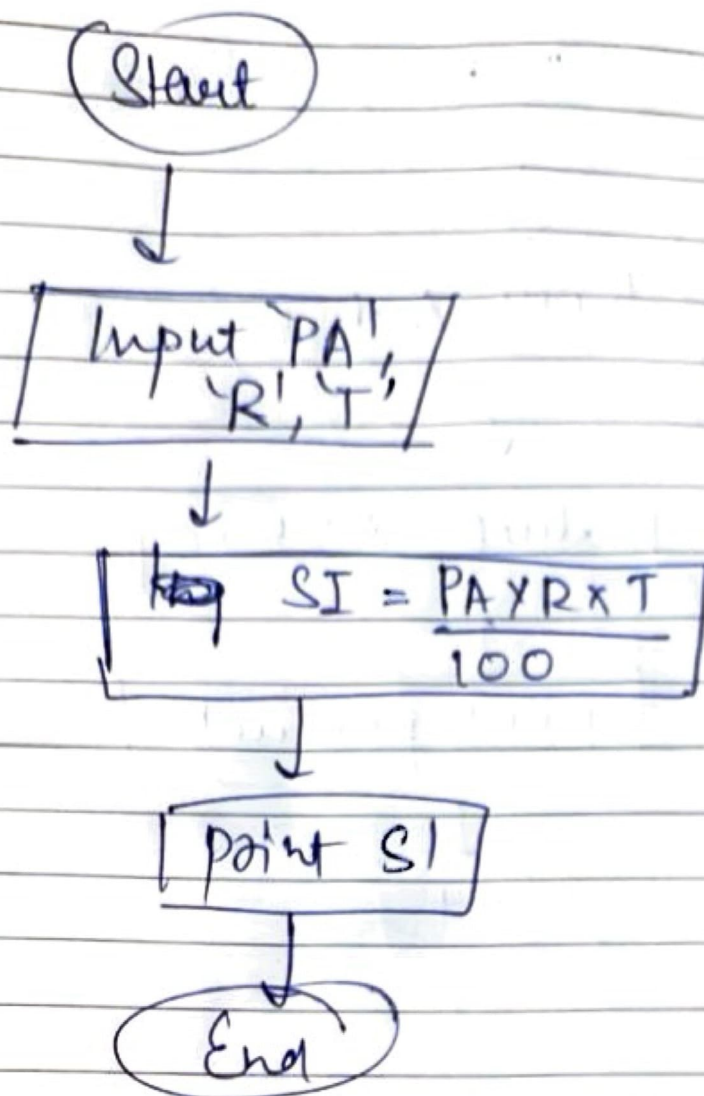 Start
Input 'PA',
'R', 'T'
SI = PA×R×T
100
Print SI
End